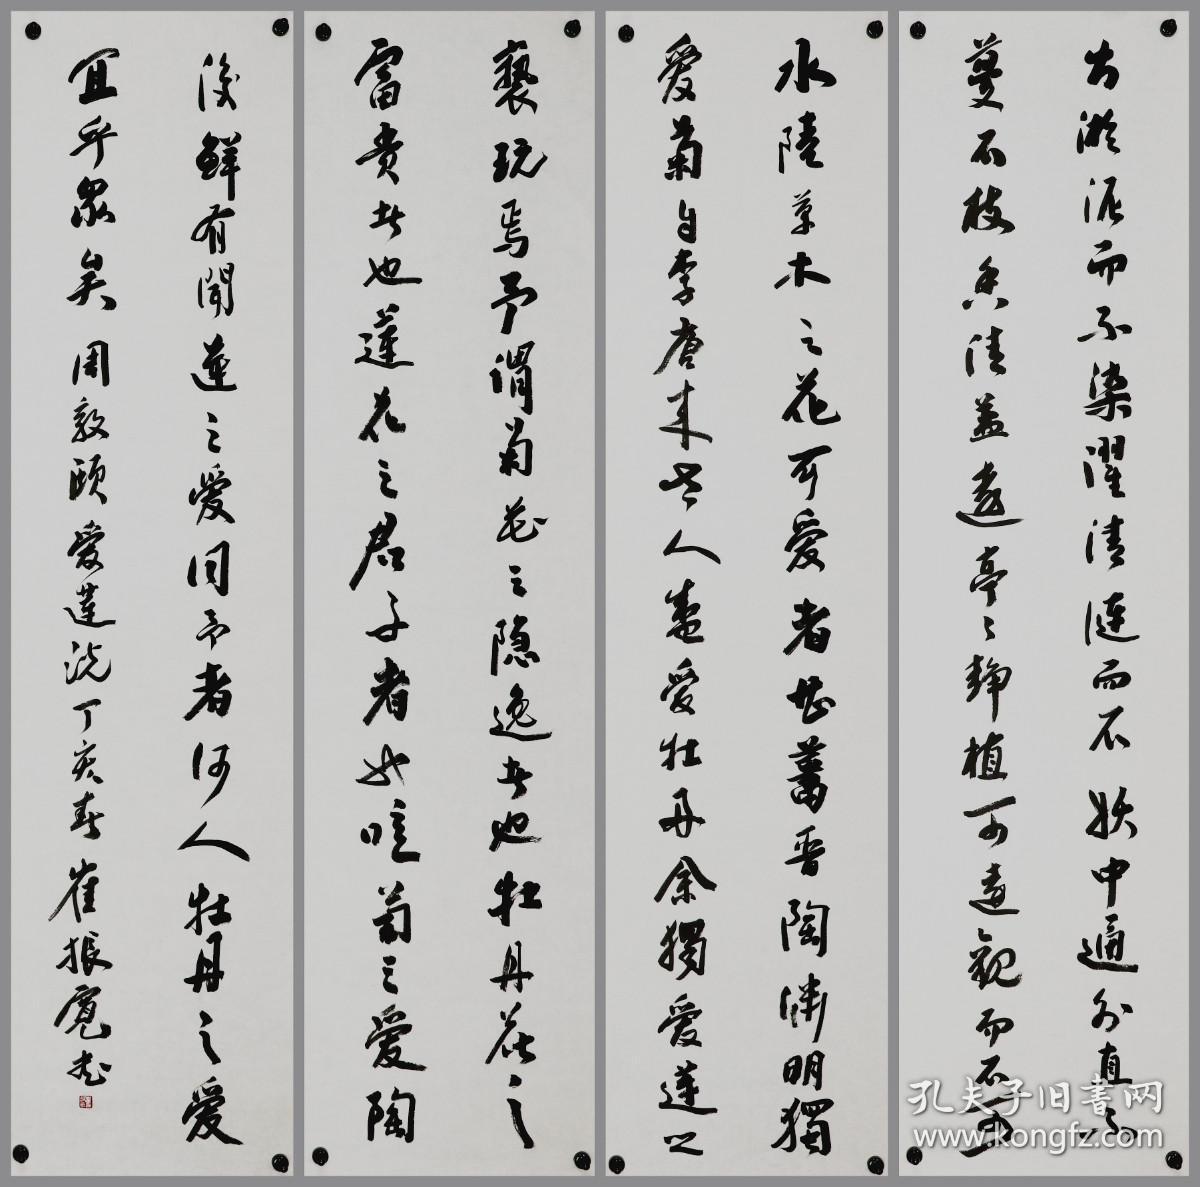 出淤泥而不染濯清漣而不妖中通外直不
蔓不枝香清益遠亭々静植可遠觀而不可
水陸草木之花可愛者甚蕃晋陶淵明獨
愛菊自李唐来世人盛愛牡丹余獨愛蓮之
褻玩焉予謂菊花之隐逸者也牡丹花之
富貴者也蓮花之君子者也噫菊之愛陶
後鮮有聞蓮之愛同予者何人牡丹之愛
宜乎衆矣 周敦頤愛蓮説丁亥春崔振寬書
孔夫子旧书网
www.kongfz.com